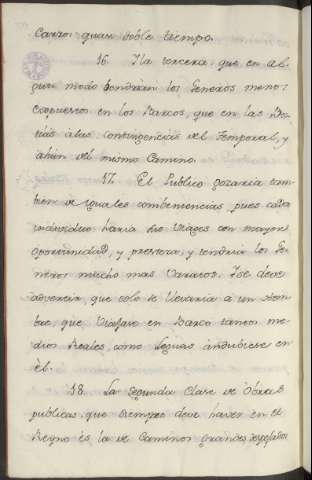 Carro: quasi doble tiempo.
16. Y la tercera: que en al-
gun modo tendrian los Generos menos
expuestos en los Barcos, que en las Bes-
tias à las contingencias del Temporal, y
ahun del mismo Camino.
17. El Publico gozaria tam-
bien de iguales combeniencias, pues cada
individuo haria sus viages con mayor
oportunidad, y presteza, y tendria los Ge-
neros mucho mas varatos. Y se deve
advertir, que solo se llevaria à un Hom-
bre, que Viajase en Barco tantos me-
dios Reales, como Leguas anduviese en
èl.
18. La Segunda Clase de Obras
publicas que siempre deve haver en el
Reyno és la de Caminos grandes despejados